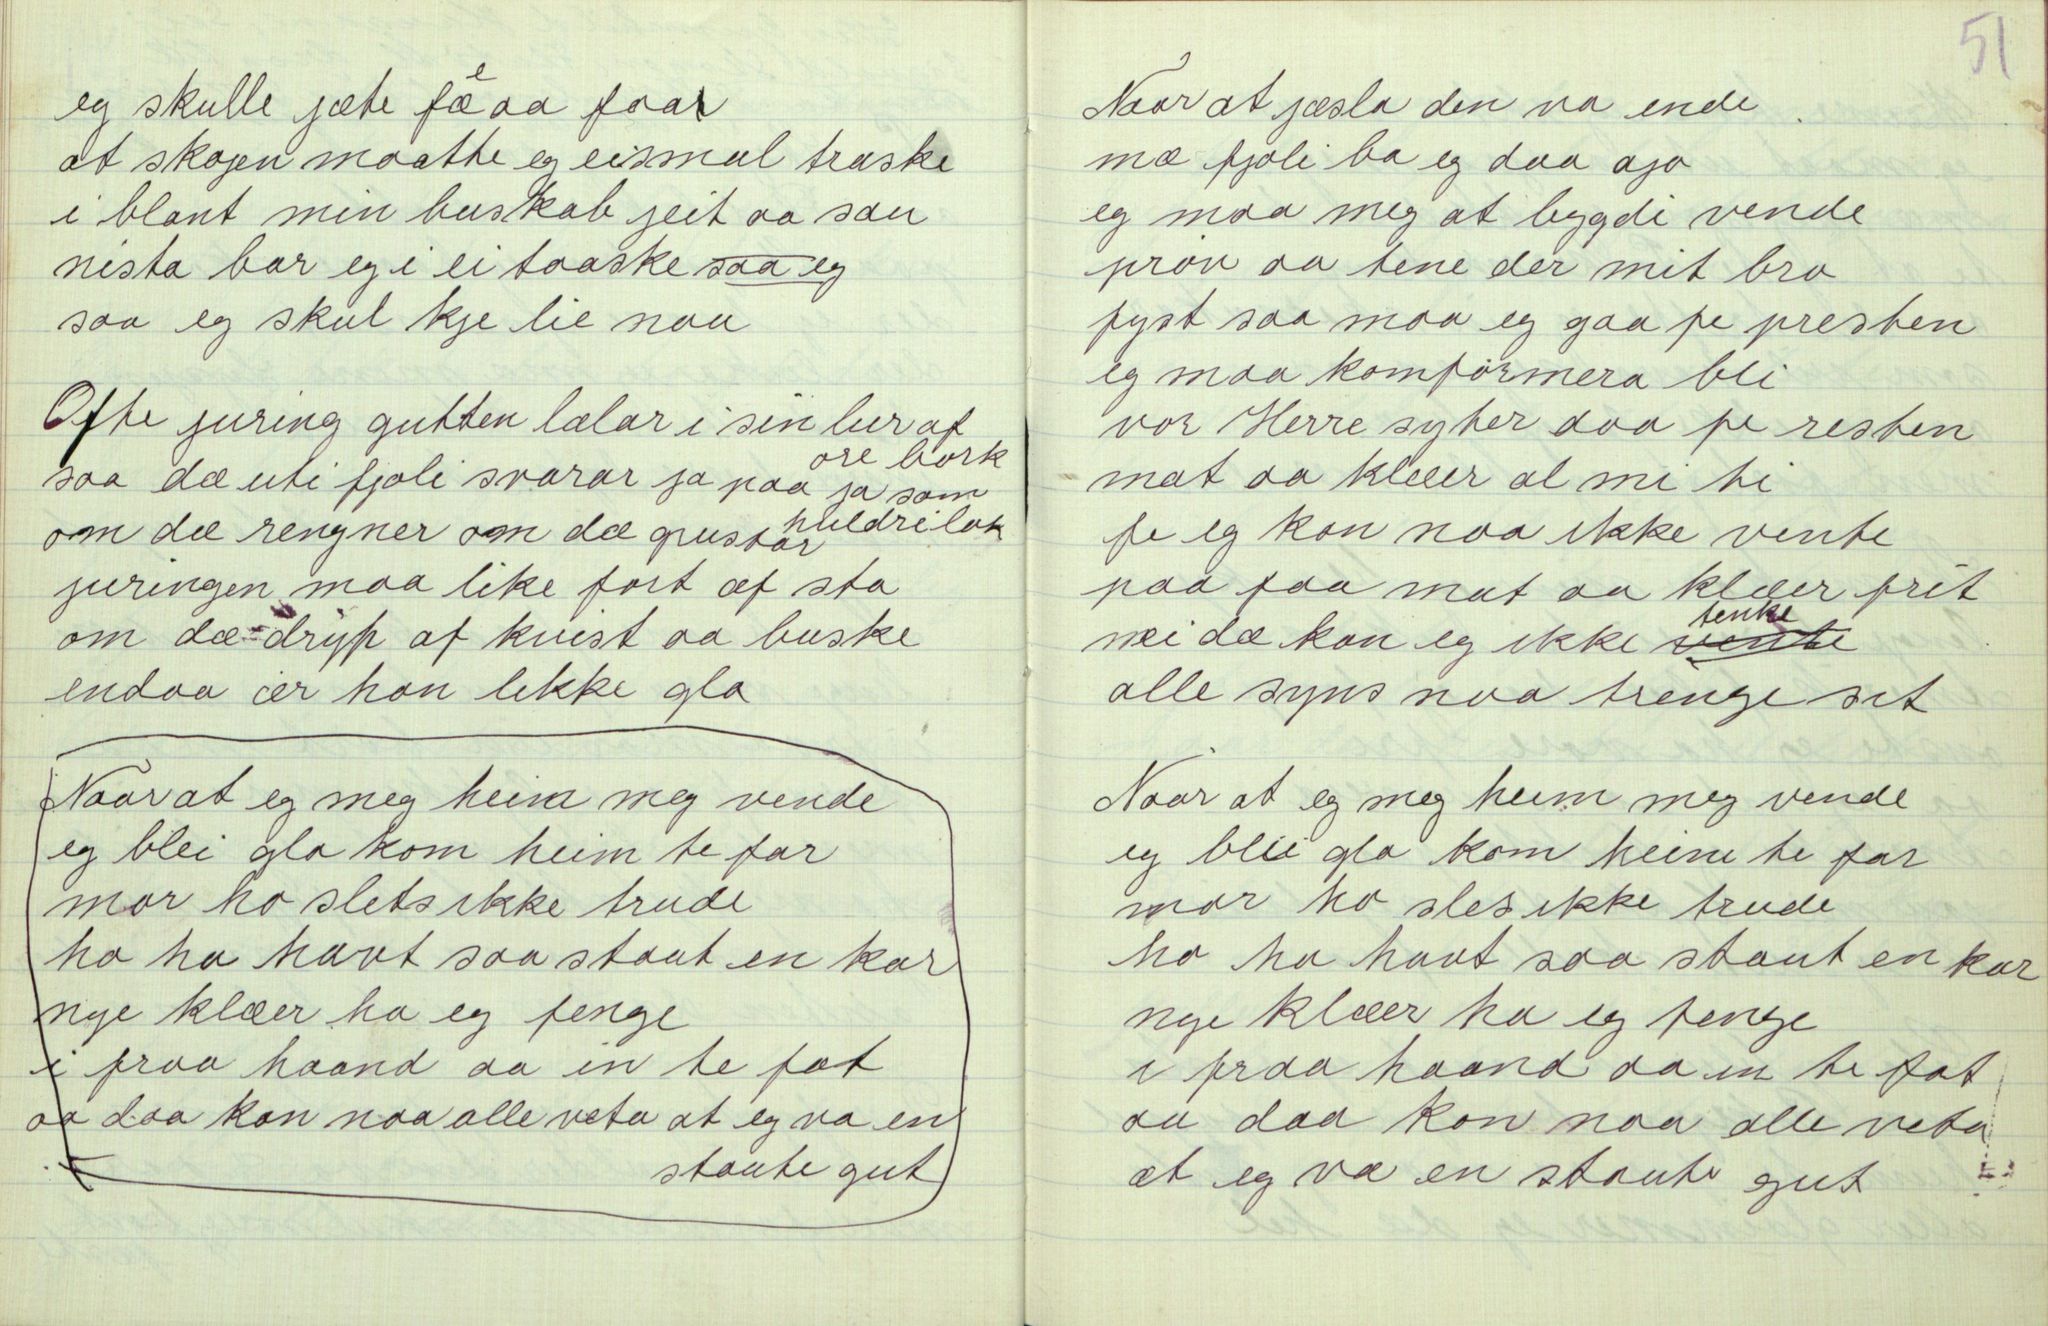 eg skulle jæte fæ e aa faar
at skogen maatte eg eismal traske
i blant min buskab jeit aa sau
nista bar eg i ei taaske saa eg
saa eg skul kje lie nau
Ofte juring gutten lælar i sin lur af
ore bork
saa dæ uti fjøli svarar ja paa ja som
huldrilok
om dæ rengner om dæ gustar
juringen maa like fort æf sta
om dæ dryp af kvist aa buske
endaa ær han likke gla
Naar at eg meg heim meg vende
eg blei gla kom heim te far
mor ho slets ikke trude
ho ha havt saa staut en kar
nye klæer ha eg fenge
i fraa haand aa in te fot
aa daa kan naa alle veta at eg va en
staute gut
51
Naar at jæsla den va ende
mæ fjøli ba eg daa ajø
eg maa meg at bygdi vende
prøv aa tene der mit brø
fyst saa maa eg gaa fe presten
eg maa komførmera bli
vor Herre syter daa fe resten
mat aa klæer al mi ti
fe eg kan naa ikke vente
paa faa mat aa klæer frit
tenke
nei dæ kan eg ikke vente
alle syns naa trenge sit
Naar at eg meg heim meg vende
eg blei gla kom heim te far
mor ho sles ikke trude
ho ha havt saa staut en kar
nye klæer ha eg fenge
i fraa haand aa in te fot
aa daa kan naa alle veta
at eg va en staute gut